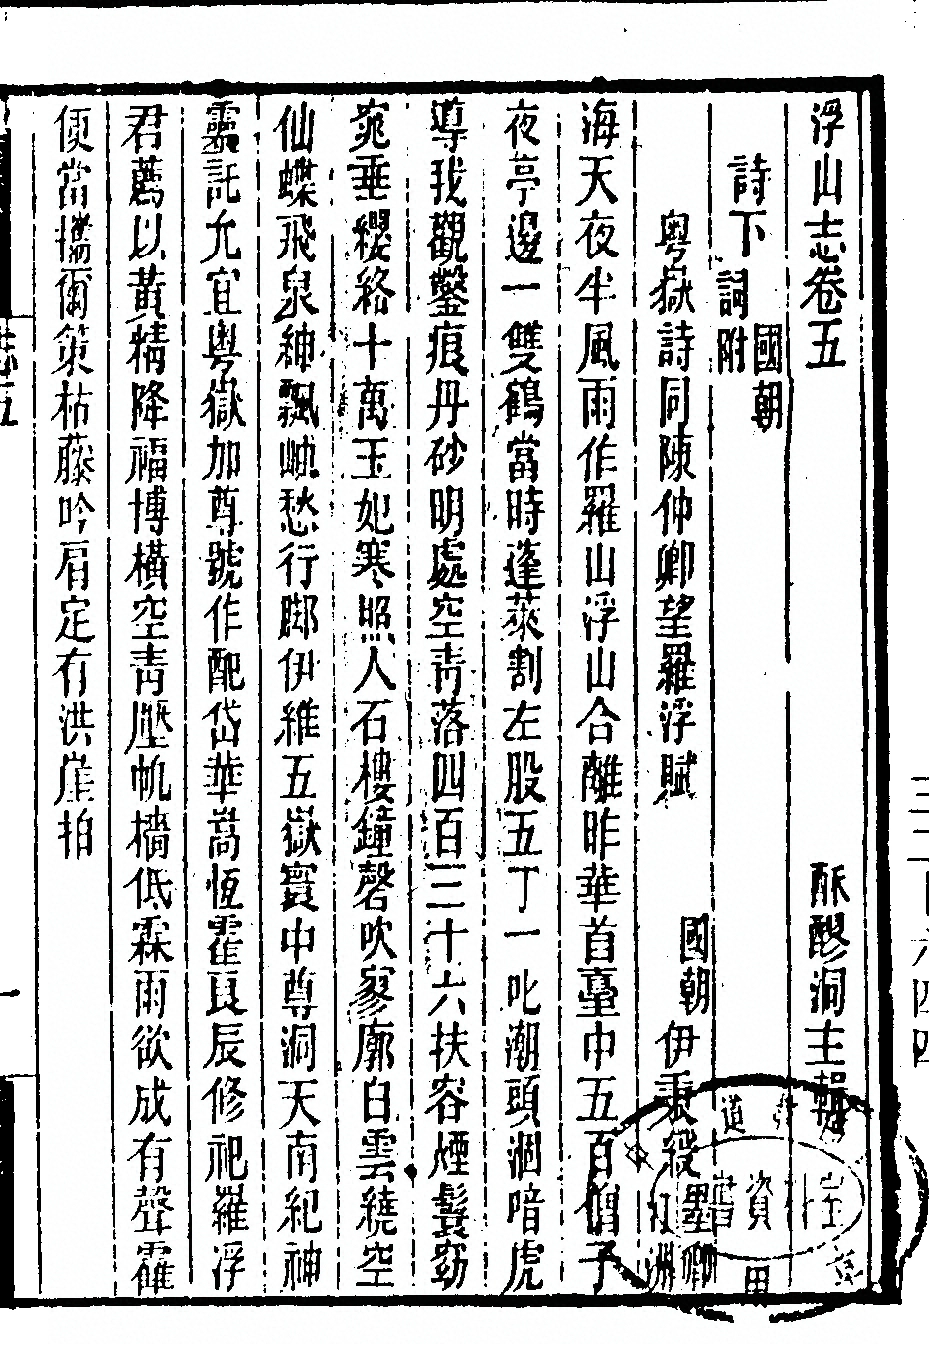 浮山志卷五　酥醪洞主輯
詩下　詞附　國朝
粤嶽詩同陳仲卿望羅浮賦　國朝伊秉綬墨卿
海天夜半風雨作羅山浮山合離昨華首臺中五百僧子
夜亭邊一雙鶴當時蓬萊割左股五丁一叱潮頭涸暗虎
導我觀鑿痕丹砂明處空青落四百三十六扶容煙鬟窈
窕垂纓絡十萬玉妃寒照人石樓鐘磬吹寥廓白雲繞空
仙蝶飛泉紳飄岫愁行腳伊維五嶽寰中尊洞天南紀神
靈託允宜粤嶽加尊號作配岱華嵩恆霍艮辰修祀羅浮
君薦以黃精降福博橫空青壓帆檣低霖雨欲成有聲霍
便當攜爾策枯藤吟肩定有洪崖拍
志五
一